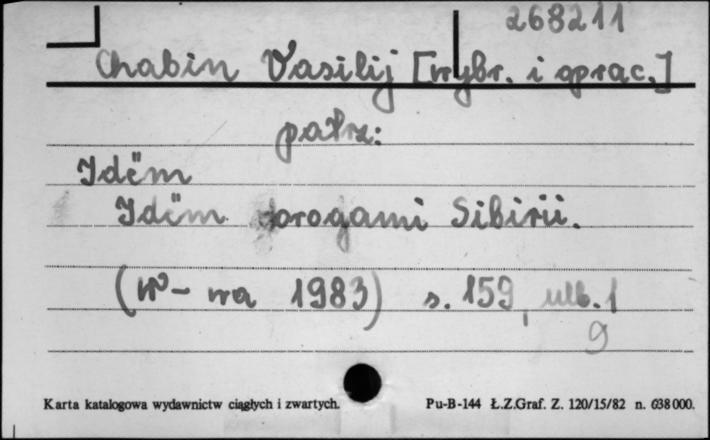 268211
Chabin Vasilij [wybr. i oprac.]
patrz:
Idëm
Idëm dorogami Sibirii.
(W-wa 1983) s. 159, ulb. 1
9
Karta katalogowa wydawnictw ciągłych i zwartych.
Pu-B-144 Ł.Z.Graf. Z. 120/15/82 n. 638 000.